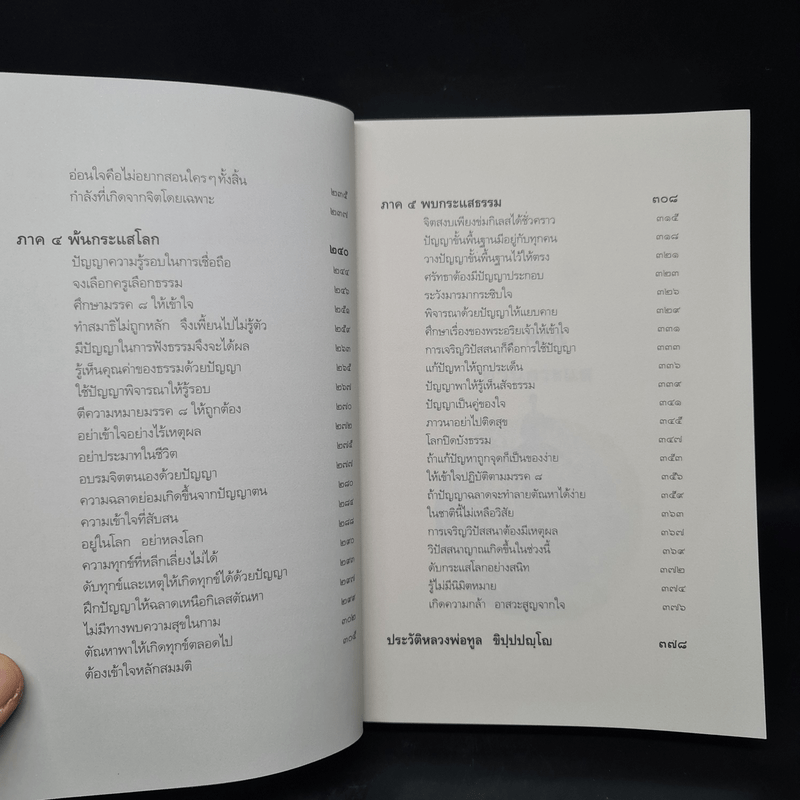 อ่อนใจคือไม่อยากสอนใครๆทั้งสิ้น ๒๓๕
กำลังที่เกิดจากจิตโดยเฉพาะ ๒๓๗
ภาค ๔ พ้นกระแสโลก ๒๔๐
ปัญญาความรู้รอบในการเชื่อถือ ๒๔๔
จงเลือกครูเลือกธรรม ๒๔๖
ศึกษามรรค ๘ ให้เข้าใจ ๒๕๑
ทำสมาธิไม่ถูกหลัก จึงเพี้ยนไปไม่รู้ตัว ๒๕๙
มีปัญญาในการฟังธรรมจึงจะได้ผล ๒๖๓
รู้เห็นคุณค่าของธรรมด้วยปัญญา ๒๖๕
ใช้ปัญญาพิจารณาให้รู้รอบ ๒๖๗
ตีความหมายมรรค ๘ ให้ถูกต้อง ๒๗๐
อย่าเข้าใจอย่างไร้เหตุผล ๒๗๒
อย่าประมาทในชีวิต ๒๗๕
อบรมจิตตนเองด้วยปัญญา ๒๗๗
ความฉลาดย่อมเกิดขึ้นจากปัญญาตน ๒๘๐
ความเข้าใจที่สับสน ๒๘๔
อยู่ในโลก อย่าหลงโลก ๒๘๘
ความทุกข์ที่หลีกเลี่ยงไม่ได้ ๒๙๐
ดับทุกข์และเหตุให้เกิดทุกข์ได้ด้วยปัญญา ๒๙๓
ฝึกปัญญาให้ฉลาดเหนือกิเลสตัณหา ๒๙๗
ไม่มีทางพบความสุขในกาม ๒๙๙
ตัณหาพาให้เกิดทุกข์ตลอดไป ๓๐๒
ต้องเข้าใจหลักสมมติ ๓๐๕
ภาค ๕ พบกระแสธรรม ๓๐๘
จิตสงบเพียงข่มกิเลสได้ชั่วคราว ๓๑๕
ปัญญาขั้นพื้นฐานมีอยู่กับทุกคน ๓๑๘
วางปัญญาขั้นพื้นฐานไว้ให้ตรง ๓๒๑
ศรัทธาต้องมีปัญญาประกอบ ๓๒๓
ระวังมารมากระซิบใจ ๓๒๖
พิจารณาด้วยปัญญาให้แยบคาย ๓๒๙
ศึกษาเรื่องของพระอริยเจ้าให้เข้าใจ ๓๓๑
การเจริญวิปัสสนาก็คือการใช้ปัญญา ๓๓๓
แก้ปัญหาให้ถูกประเด็น ๓๓๖
ปัญญาพาให้รู้เห็นสัจธรรม ๓๓๙
ปัญญาเป็นคู่ของใจ ๓๔๑
ภาวนาอย่าไปติดสุข ๓๔๕
โลกปิดบังธรรม ๓๔๗
ถ้าแก้ปัญหาถูกจุดก็เป็นของง่าย ๓๕๓
ให้เข้าใจปฏิบัติตามมรรค ๘ ๓๕๖
ถ้าปัญญาฉลาดจะทำลายตัณหาได้ง่าย ๓๕๙
ในชาตินี้ไม่เหลือวิสัย ๓๖๓
การเจริญวิปัสสนาต้องมีเหตุผล ๓๖๗
วิปัสสนาญาณเกิดขึ้นในช่วงนี้ ๓๖๙
ดับกระแสโลกอย่างสนิท ๓๗๒
รู้ไม่มีนิมิตหมาย ๓๗๔
เกิดความกล้า อาสวะสูญจากใจ ๓๗๖
ประวัติหลวงพ่อทูล ขิปฺปปญฺโญ ๓๗๘